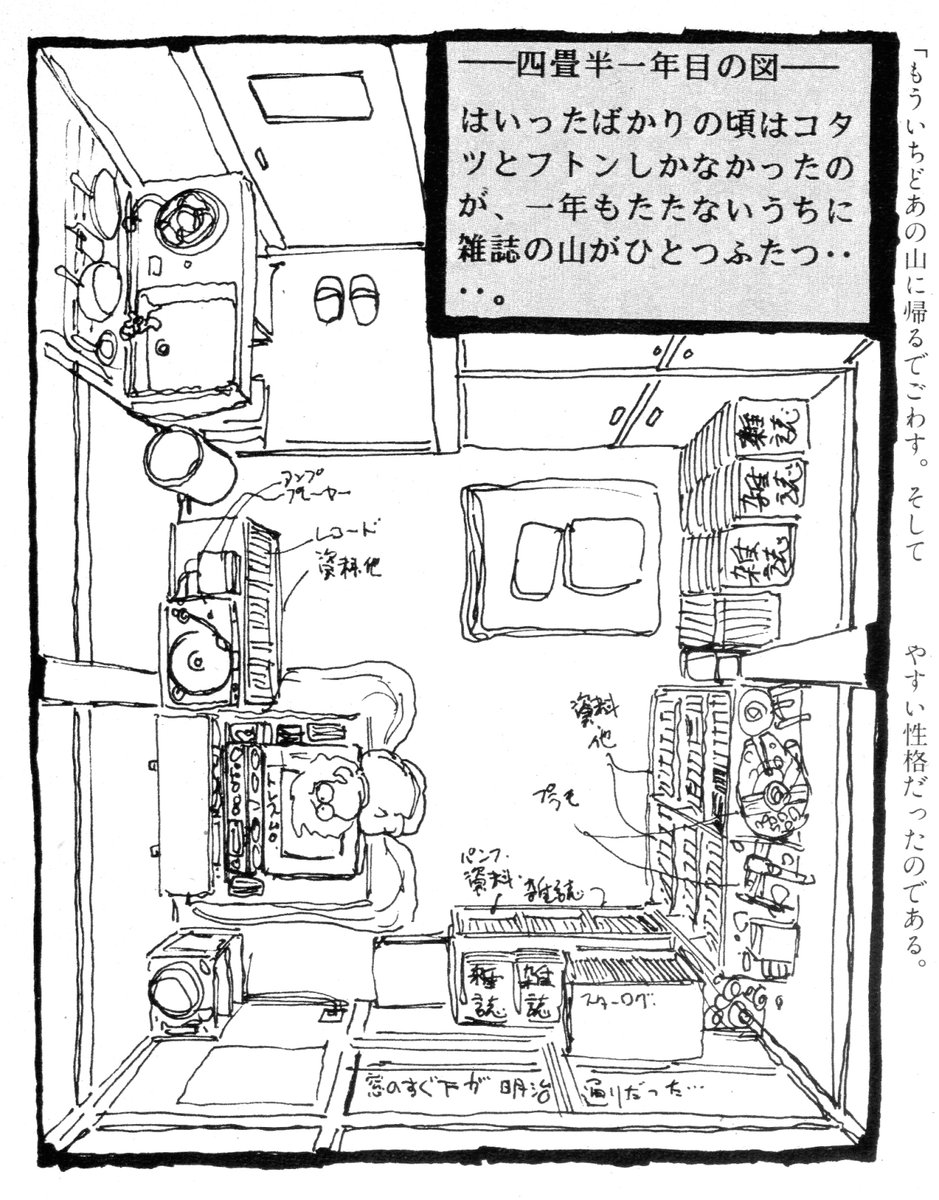 「もういちどあの山に帰るでごわす。そして
やすい性格だったのである。
──四畳半一年目の図──
はいったばかりの頃はコタ
ツとフトンしかなかったの
が、一年もたたないうちに
雑誌の山がひとつふたつ‥
‥。
アンプ
プレーヤー
レコード
資料他
雑誌
雑誌
雑誌
資料
他
プラモ
トレスムロ
パンフ・
資料・雑誌
雑誌
雑誌
スターログ
窓のすぐ下が明治
通りだった…